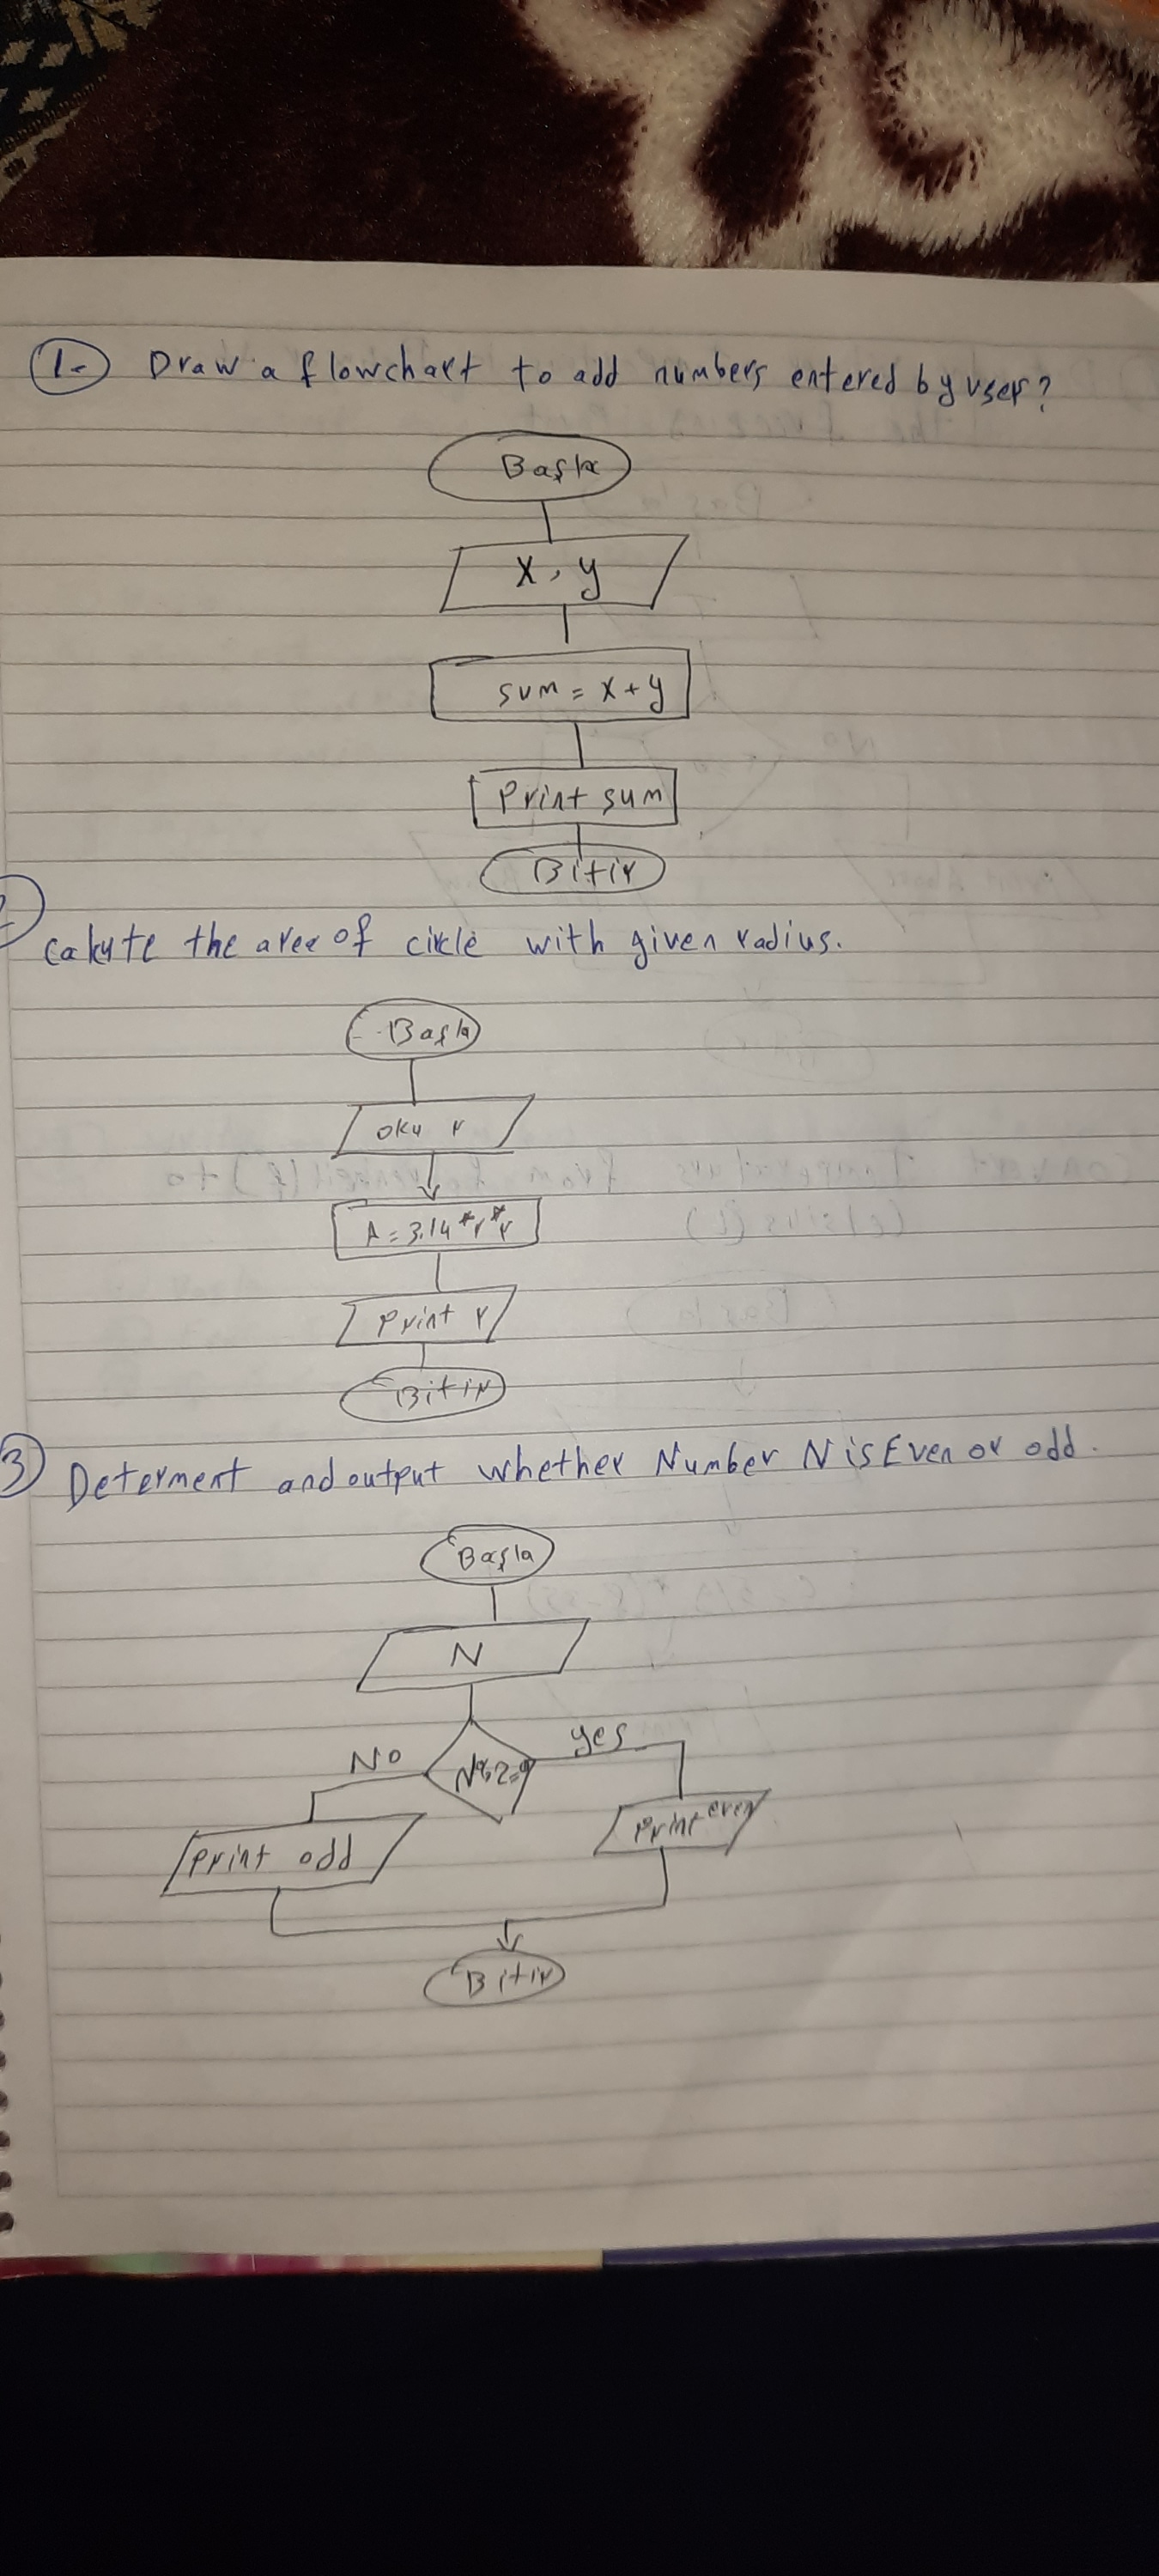 1- Draw a flowchart to add numbers entered by user?
Başla
x, y
sum = x + y
Print sum
Bitir
Calcute the area of circle with given radius.
Başla
oku r
A = 3.14 * r * r
Print r
Bitir
3 Determent and output whether Number N is Even or odd.
Başla
N
No
yes
print odd
Print even
Bitir